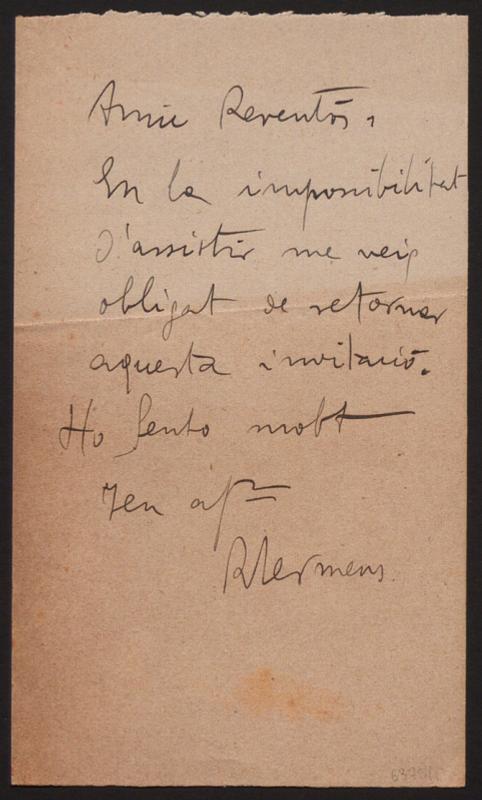 Amic Reventós,
En la impossibilitat
d'assistir me veig
obligat de retornar
aquesta invitació.
Ho sento molt
Teu afm